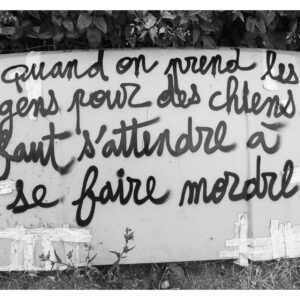 Quand on prend les
gens pour des chiens
faut s'attendre à
se faire mordre